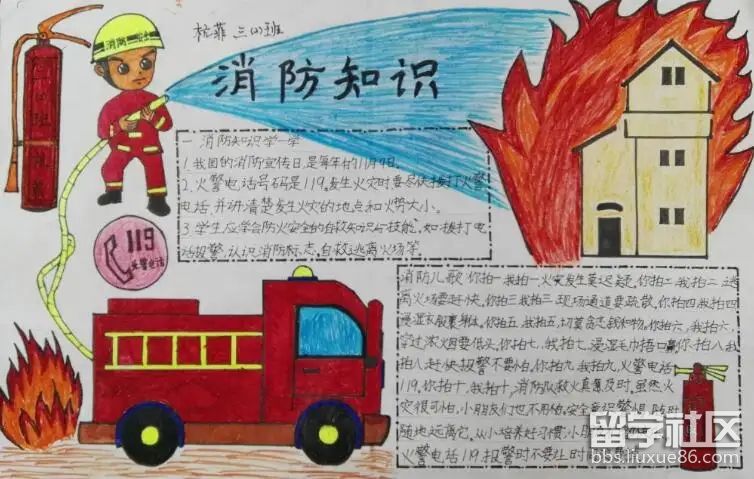 杭菲 三(1)班
消防知识
消防
119
火警电话
一 消防知识学一学
1 我国的消防宣传日,是每年的11月9日.
2.火警电话号码是119.发生火灾时要尽快拨打火警
电话,并讲清楚发生火灾的地点和火势大小。
3 学生应学会防火安全的自救知识与技能,如:拨打电
话报警,认识消防标志,自救逃离火场等.
消防儿歌 你拍一我拍一火灾发生莫迟疑,你拍二我拍二逃
离火场要赶快,你拍三我拍三,现场通道要疏散,你拍四我拍四
湿衣服裹身体,你拍五,我拍五,切莫贪恋钱和物,你拍六,我拍六,
穿过浓烟要低头,你拍七,我拍七,浸湿毛巾捂口鼻你拍八我
拍八赶快报警不要怕,你拍九,我拍九,火警电话
119,你拍十,我拍十,消防队救火真及时,虽然火
灾很可怕,小朋友们也不用怕,安全意识警惕,随时
随地远离它,从小培养好习惯,小
火警电话119.报警时不要让
留学社区
bbs.liuxue86.com